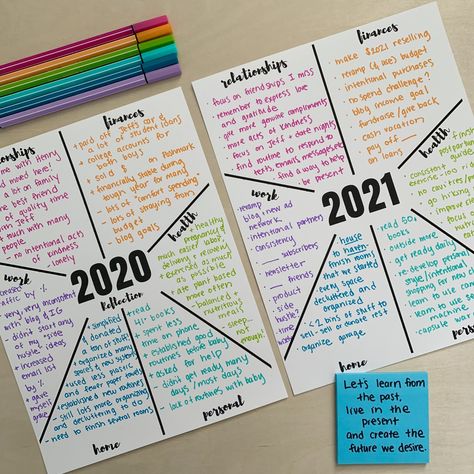 relationships
with Henry
moved here!
a lot of family
the best friend
of quality time
with Jeff
much with many
people
- no intentional acts
of kindness
- lonely
finances
+ paid off Jeff's car &
a lot of student loans
+ college accounts for
both boys
+ sold $ on Poshmark
+ financially stable during
tough year for many
- lots of comfort spending
- lots of straying from
budget
- blog goals
health
much
pregnancy &
delivery/labor
research &
exercised as much
as possible
+ ate plant based
more often
- balanced +
nutritious
meals
- sleep..
not
enough!
work
increased
traffic by %
- very inconsistent
with blog & IG
- didn't start any
of my side
hustle ideas
+ increased
email list
by %
+ gave
myself
grace
2020
Reflection
simplified
& donated
a ton of stuff
+ organized many
spaces & new systems
+ used less plastic
and paper towels
+ established new routines
- still lots more organizing
and decluttering to do
- need to finish several rooms
home
+ read
41+ books
+ spent less
time on phone
+ established good
routines before baby
+ asked for help
- didn't get ready many
days / most days
- lack of routines with baby
personal
relationships
- focus on friendships I miss
- remember to express love
and gratitude
- give more genuine compliments
- more acts of kindness
- focus on Jeff & date nights
- find routine to respond to
texts, emails, messages, etc
- find a way to help
- be present
finances
- make $2021 reselling
- revamp (& use) budget
- intentional purchases
- no spend challenge?
- blog income goal
- fundraise/give back
- cash vacation
- pay off
on loans
health
consistency
exercise - 100
no cavities/
go most
improve
work
- revamp
blog + new ad
network
- intentional partner
- consistency
- subscribers
- newsletter
- friends
- product
- side
- hustle
- write?
2021
- house
to home
- finish mom rooms
that we started
- every space
decluttered and
organized
- < 2 bins of stuff to
sell - sell or donate rest
- organize garage
home
- read 50
books
- outside more
- get ready daily
- re-develop personal
style/intentional
shopping for needs
- learn to use
- learn to use
machine
- capsule
personal
Let's learn from
the past,
live in the
present
and create the
future we desire.